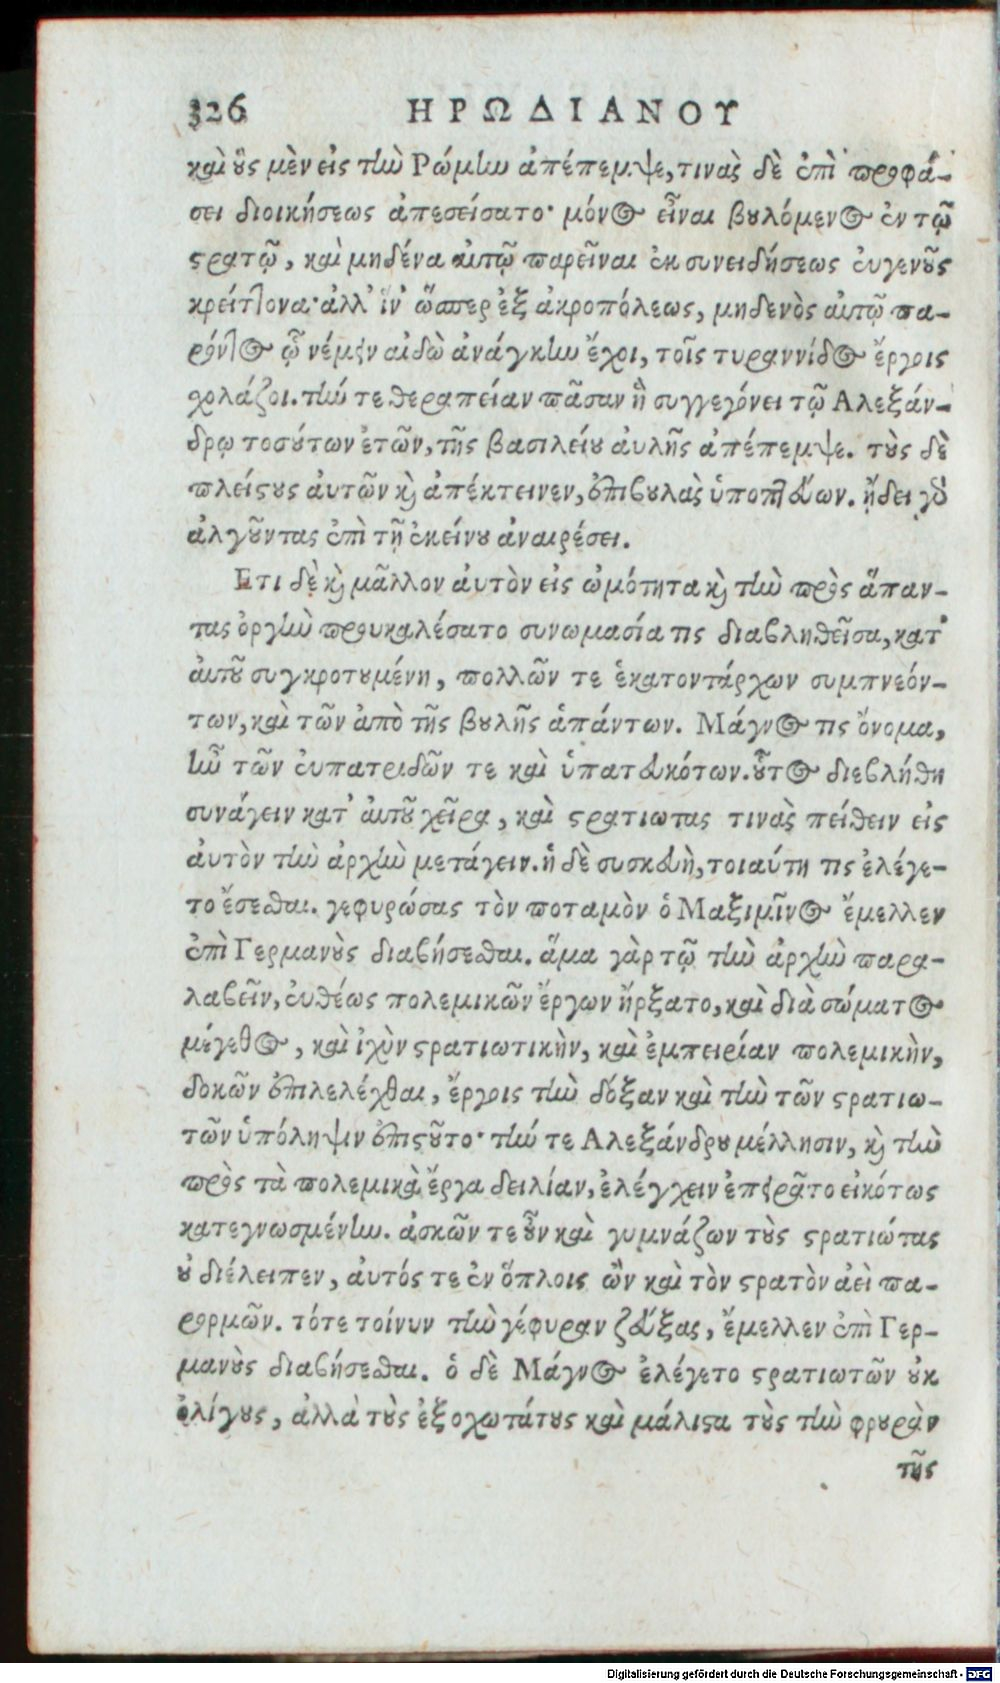 326 ΗΡΩΔΙΑΝΟΥ
καὶ οὓς μὲν εἰς τὴν Ρώμην ἀπέπεμψε, τινὰς δὲ ἐπὶ προφά-
σει διοικήσεως ἀπεσείσατο· μόνος εἶναι βουλόμενος ἐν τῷ
στρατῷ, καὶ μηδένα αὐτῷ παρεῖναι ἐκ συνειδήσεως εὐγενοῦς
κρείττονα· ἀλλ' ἵν' ὥσπερ ἐξ ἀκροπόλεως, μηδενὸς αὐτῷ πα-
ρόντος ᾧ νέμειν αἰδὼ ἀνάγκην ἔχοι, τοῖς τυραννίδος ἔργοις
χολάζοι. τήν τε θεραπείαν πᾶσαν ἣ συγγεγόνει τῷ Αλεξάν-
δρῳ τοσούτων ἐτῶν, τῆς βασιλείου αὐλῆς ἀπέπεμψε. τοὺς δὲ
πλείστους αὐτῶν καὶ ἀπέκτεινεν, ἐπιβουλὰς ὑποπτεύων. ᾔδει γὰρ
ἀλγοῦντας ἐπὶ τῇ ἐκείνου ἀναιρέσει.
Ετι δὲ καὶ μᾶλλον αὐτὸν εἰς ὠμότητα καὶ τὴν πρὸς ἅπαν-
τας ὀργὴν προυκαλέσατο συνωμασία τις διαβληθεῖσα, κατ'
αὐτοῦ συγκροτουμένη, πολλῶν τε ἑκατοντάρχων συμπνεόν-
των, καὶ τῶν ἀπὸ τῆς βουλῆς ἁπάντων. Μάγνος τις ὄνομα,
ἦν τῶν εὐπατριδῶν τε καὶ ὑπατευκότων. οὗτος διεβλήθη
συνάγειν κατ' αὐτοῦ χεῖρα, καὶ στρατιωτας τινὰς πείθειν εἰς
αὐτὸν τὴν ἀρχὴν μετάγειν. ἡ δὲ συσκευὴ, τοιαύτη τις ἐλέγε-
το ἔσεσθαι. γεφυρώσας τὸν ποταμὸν ὁ Μαξιμῖνος ἔμελλεν
ἐπὶ Γερμανοὺς διαβήσεσθαι. ἅμα γὰρ τῷ τὴν ἀρχὴν παρα-
λαβεῖν, εὐθέως πολεμικῶν ἔργων ἤρξατο, καὶ διὰ σώματος
μέγεθος, καὶ ἰχὺν στρατιωτικὴν, καὶ ἐμπειρίαν πολεμικὴν,
δοκῶν ἐπιλελέχθαι, ἔργοις τὴν δόξαν καὶ τὴν τῶν στρατιω-
τῶν ὑπόληψιν ἐπιστοῦτο· τήν τε Αλεξάνδρου μέλλησιν, καὶ τὴν
πρὸς τὰ πολεμικὰ ἔργα δειλίαν, ἐλέγχειν ἐπειρᾶτο εἰκότως
κατεγνωσμένην. ἀσκῶν τε οὖν καὶ γυμνάζων τοὺς στρατιώτας
οὐ διέλειπεν, αὐτός τε ἐν ὅπλοις ὢν καὶ τὸν στρατὸν ἀεὶ πα-
ρορμῶν. τότε τοίνυν τὴν γέφυραν ζεύξας, ἔμελλεν ἐπὶ Γερ-
μανοὺς διαβήσεσθαι. ὁ δὲ Μάγνος ἐλέγετο στρατιωτῶν οὐκ
ὀλίγους, ἀλλὰ τοὺς ἐξοχωτάτους καὶ μάλιστα τοὺς τὴν φρουρὰν
τῆς
Digitalisierung gefördert durch die Deutsche Forschungsgemeinschaft · DFG